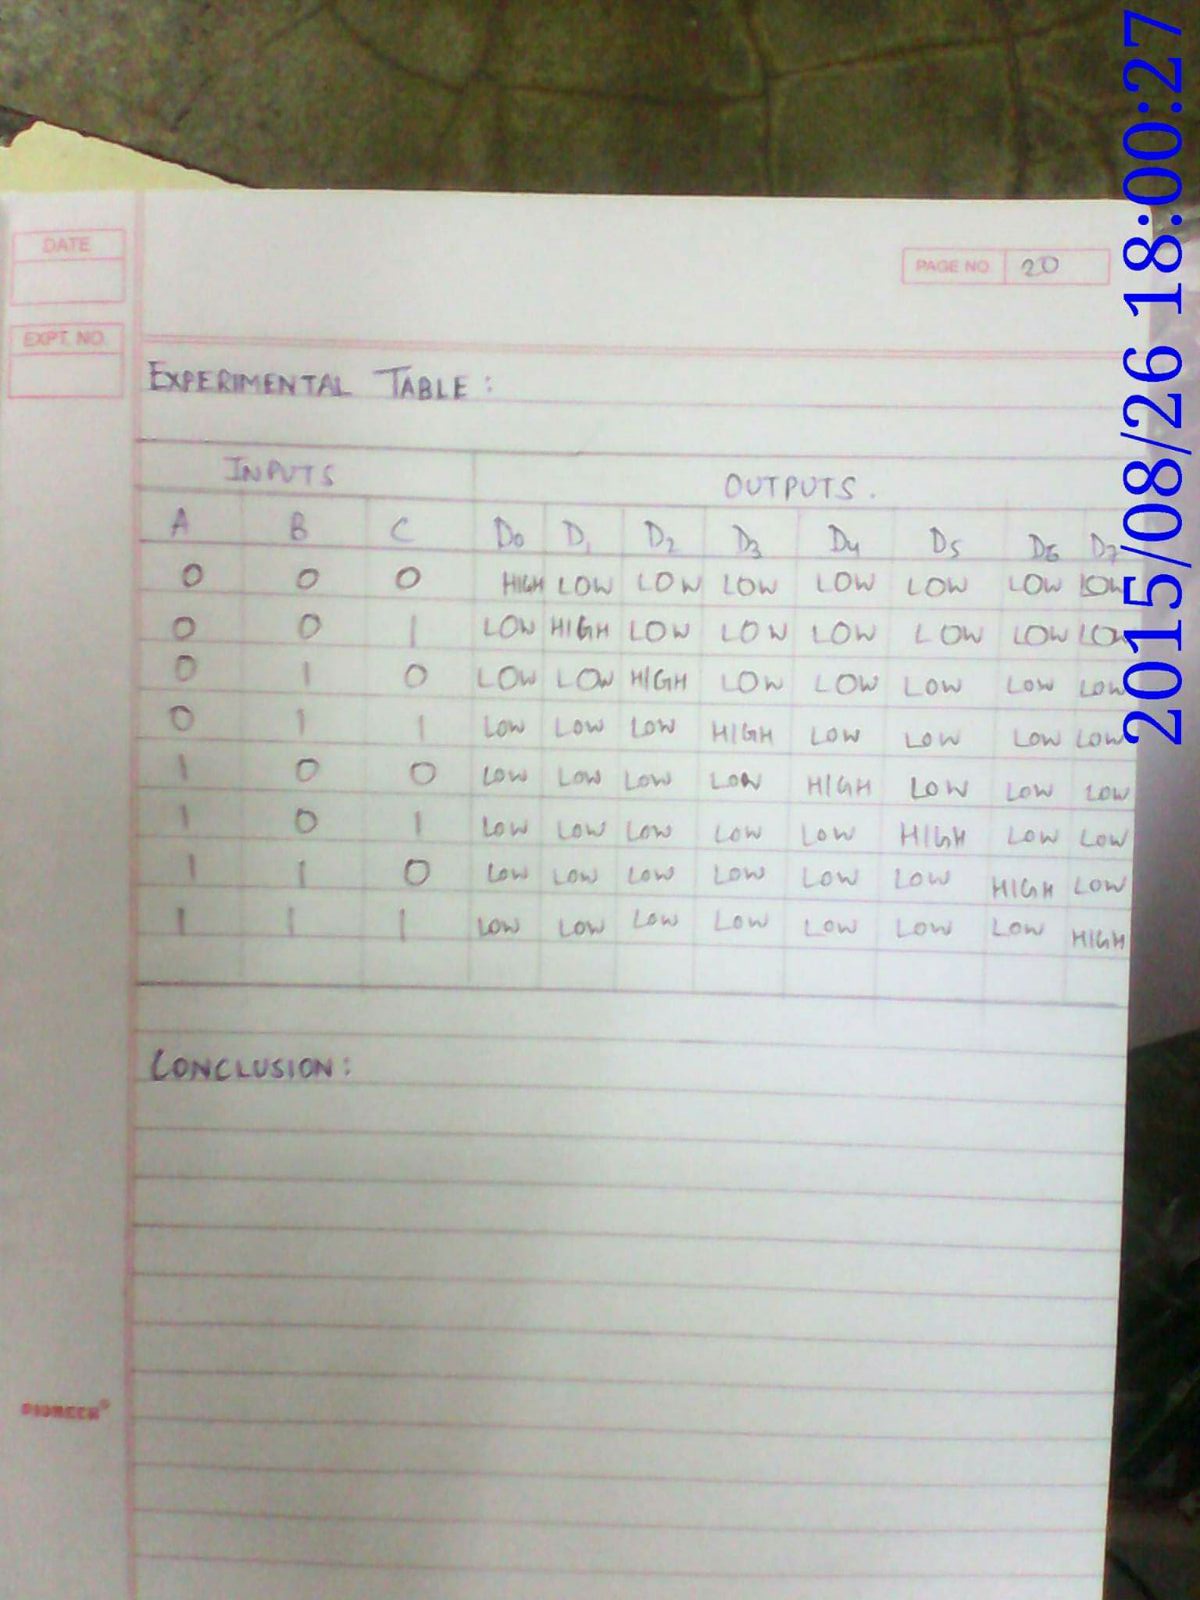 2015/08/26 18:00:27
DATE
PAGE NO 20
EXPT. NO.
EXPERIMENTAL TABLE:
INPUTS OUTPUTS.
A B C D0 D1 D2 D3 D4 D5 D6 D7
0 0 0 HIGH LOW LOW LOW LOW LOW LOW LOW
0 0 1 LOW HIGH LOW LOW LOW LOW LOW LOW
0 1 0 LOW LOW HIGH LOW LOW LOW LOW LOW
0 1 1 LOW LOW LOW HIGH LOW LOW LOW LOW
1 0 0 LOW LOW LOW LOW HIGH LOW LOW LOW
1 0 1 LOW LOW LOW LOW LOW HIGH LOW LOW
1 1 0 LOW LOW LOW LOW LOW LOW HIGH LOW
1 1 1 LOW LOW LOW LOW LOW LOW LOW HIGH
CONCLUSION: